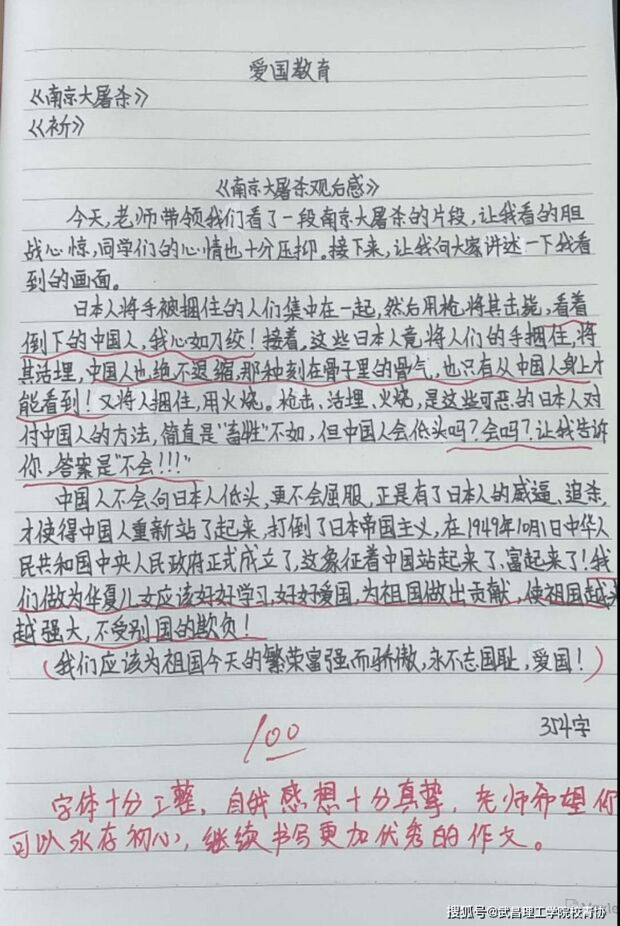 爱国教育
《南京大屠杀》
《》
《南京大屠杀观后感》
今天,老师带领我们看了一段南京大屠杀的片段,让我看的胆
战心惊,同学们的心情也十分压抑。接下来,让我向大家讲述一下我看
到的画面。
日本人将手被捆住的人们集中在一起,然后用枪将其击毙,看着
倒下的中国人,我心如刀绞!接着,这些日本人竟将人们的手捆住,将
其活埋,中国人也绝不退缩,那种刻在骨子里的骨气,也只有从中国人身上才
能看到!又将人捆住,用火烧。枪击、活埋、火烧,是这些可恶的日本人对
付中国人的方法,简直是"畜牲"不如,但中国人会低头吗?会吗?让我告诉
你,答案是"不会!!!"
中国人不会向日本人低头,更不会屈服,正是有了日本人的威逼、追杀,
才使得中国人重新站了起来,打倒了日本帝国主义,在1949年10月1日中华人
民共和国中央人民政府正式成立了,这象征着中国站起来了、富起来了!我
们做为华夏儿女应该好好学习,好好爱国,为祖国做出贡献,使祖国越来
越强大,不受别国的欺负!
(我们应该为祖国今天的繁荣富强而骄傲,永不忘国耻,爱国!)
100
354字
字体十分工整,自我感想十分真挚,老师希望你
可以永存初心,继续书写更加优秀的作文。
搜狐号@武昌理工学院校青协